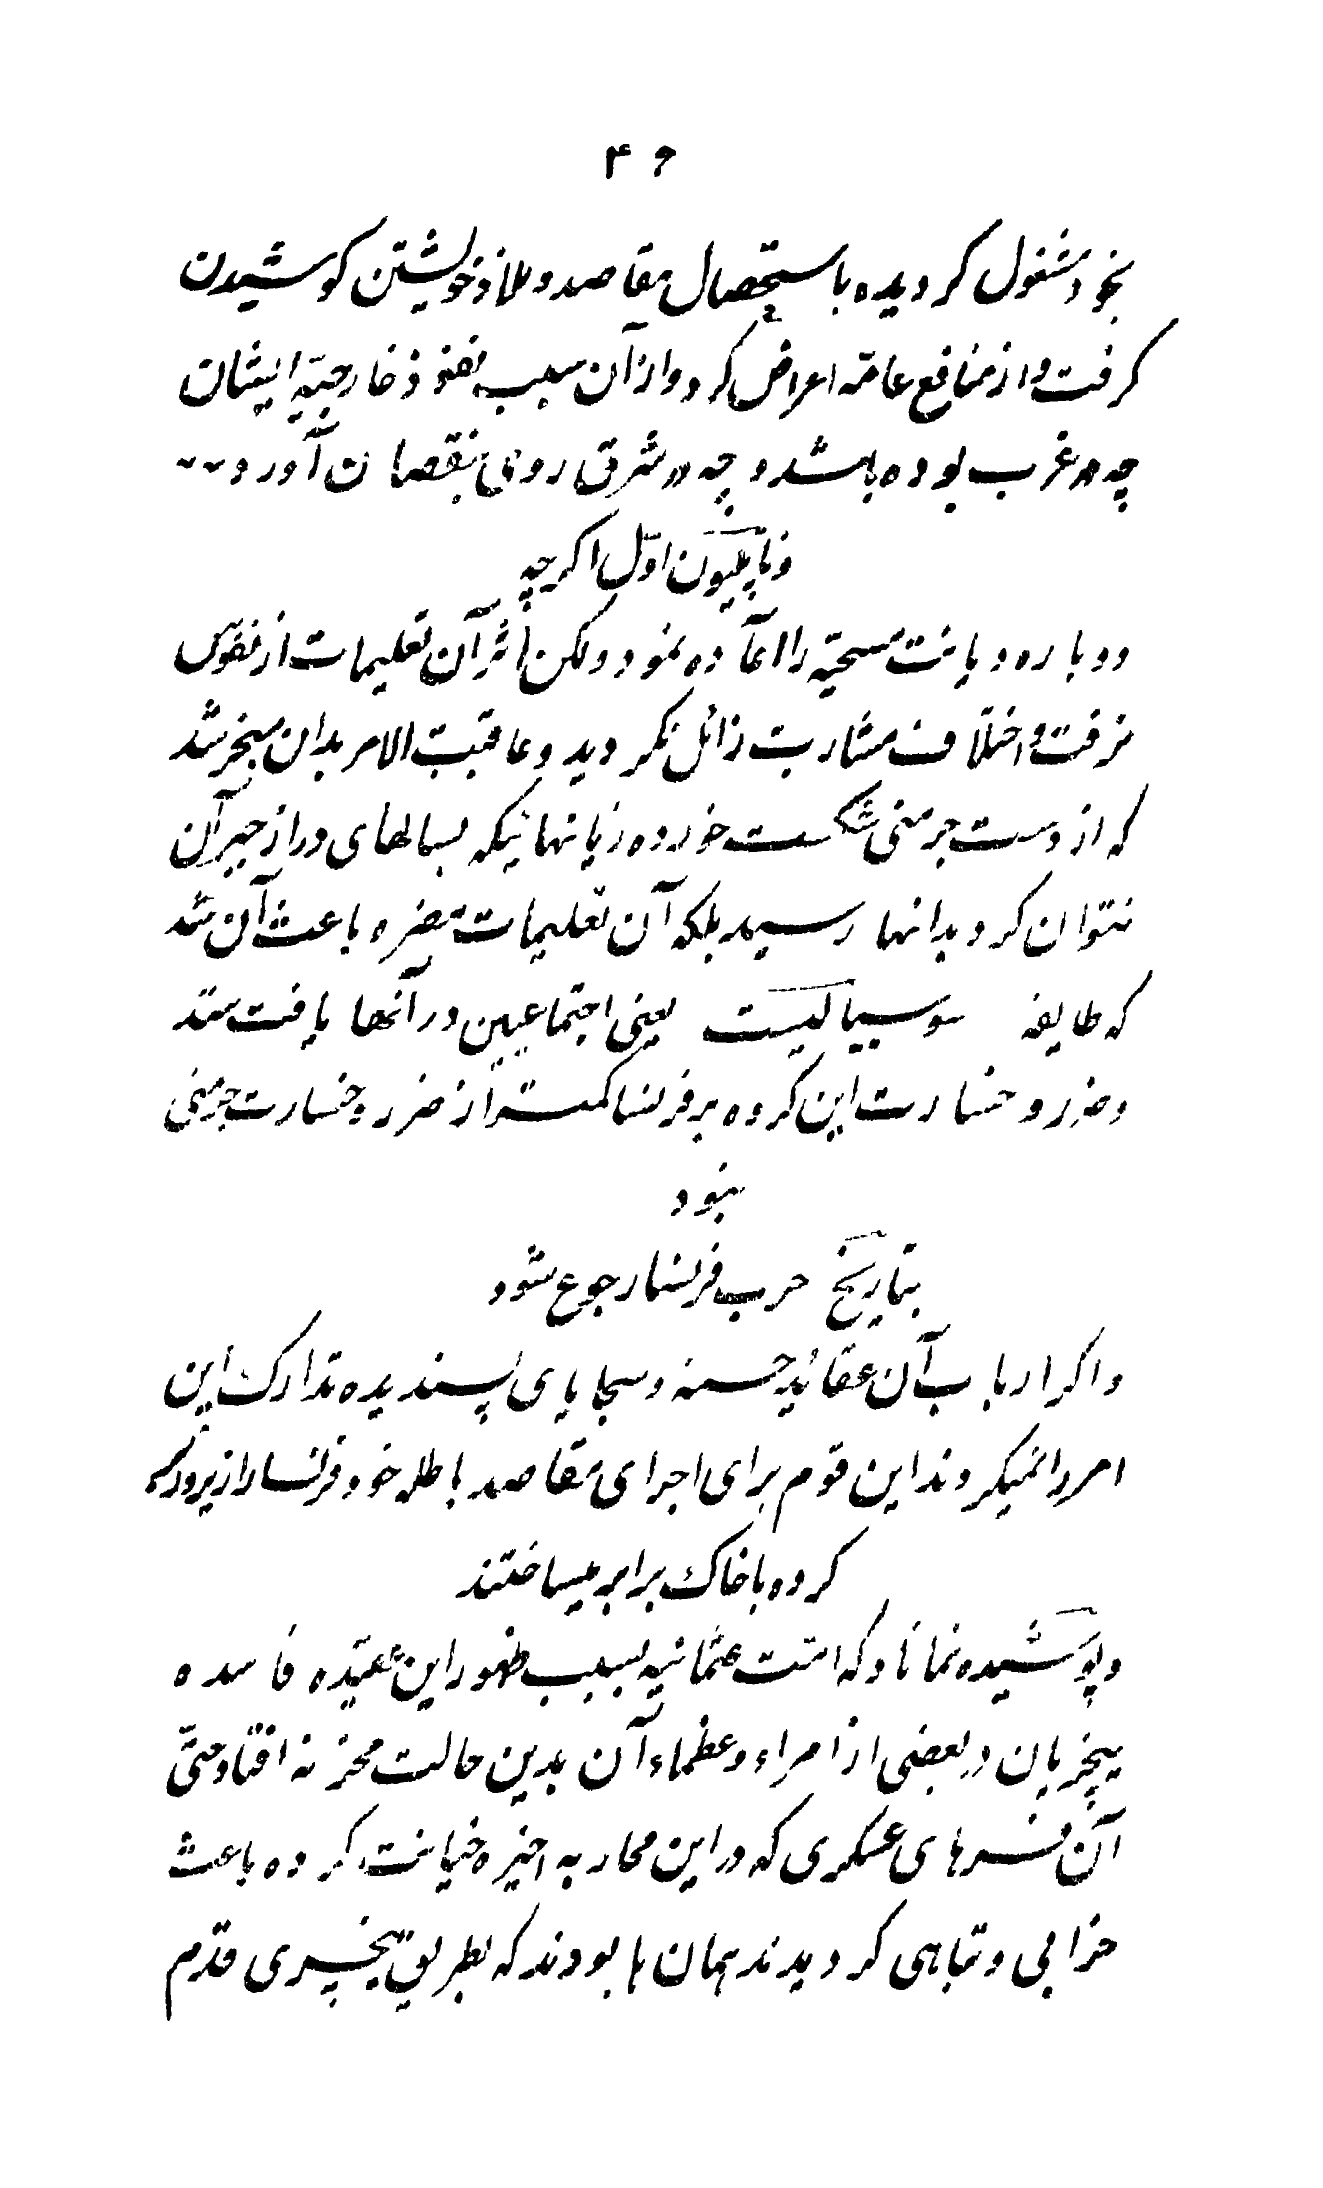 ۴۶
بخود مشغول کردیده باستحصال مقاصد و ملاذ خویشتن کوشیدن
کرفت و از منافع عامه اعراض کرد و از آن سبب نفوذ خارجیّهٔ ایشان
چه در غرب بوده باشد و چه در شرق روی بنقصان آورد ۰۰
و ناپلیون اوّل اکرچه
دوباره دیانت مسحیّه را اعاده نمود ولکن اثر آن تعلیمات از نفوس
نرفت و اختلاف مشارب زائل نکردید و عاقبت الامر بدان منجر شد
که از دست جرمنی شکست خورده زیانهائیکه بسالهای دراز جبر آن
نتوان کرد بدانها رسید بلکه آن تعلیمات مضره باعث آن شد
که طایفه سوسیالیست یعنی اجتماعیین در آنها یافت شد
و ضرر و خسارت این کروه بر فرنسا کمتر از ضرر و خسارت جرمنی
نبود
بتاریخ حرب فرنسا رجوع شود
و اکر ارباب آن عقائد حسنه و سجایای پسندیده تدارک این
امر را نمیکردند این قوم برای اجرای مقاصد باطله خود فرنسا را زیر و زبر
کرده با خاک برابر میساختند
و پوشیده نماناد که امّت عثمانیه بسبب ظهور این عقیّده فاسده
نیچریان در بعضی از امراء و عظماء آن بدین حالت محزنه افتاد حتّی
آن فسرهای عسکری که در این محاربه اخیره خیانت کرده باعث
خرابی و تباهی کردیدند همان ها بودند که بطریق نیچری قدم